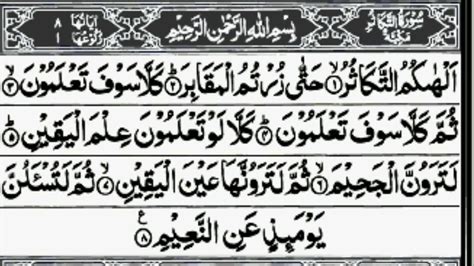 سُوْرَةُ التَّكَاثُرِ مَكِّيَّةٌ بِسْمِ اللهِ الرَّحْمٰنِ الرَّحِيْمِ اٰيَاتُهَا ٨ رُكُوْعُهَا ١
اَلْهٰىكُمُ التَّكَاثُرُ ۙ‏﴿۱﴾ حَتّٰى زُرْتُمُ الْمَقَابِرَ ؕ‏﴿۲﴾ كَلَّا سَوْفَ تَعْلَمُوْنَ ۙ‏﴿۳﴾
ثُمَّ كَلَّا سَوْفَ تَعْلَمُوْنَ ؕ‏﴿۴﴾ كَلَّا لَوْ تَعْلَمُوْنَ عِلْمَ الْيَقِيْنِ ؕ‏﴿۵﴾
لَتَرَوُنَّ الْجَحِيْمَ ۙ‏﴿۶﴾ ثُمَّ لَتَرَوُنَّهَا عَيْنَ الْيَقِيْنِ ۙ‏﴿۷﴾ ثُمَّ لَتُسْـَٔلُنَّ
يَوْمَئِذٍ عَنِ النَّعِيْمِ ‏﴿۸﴾ ع